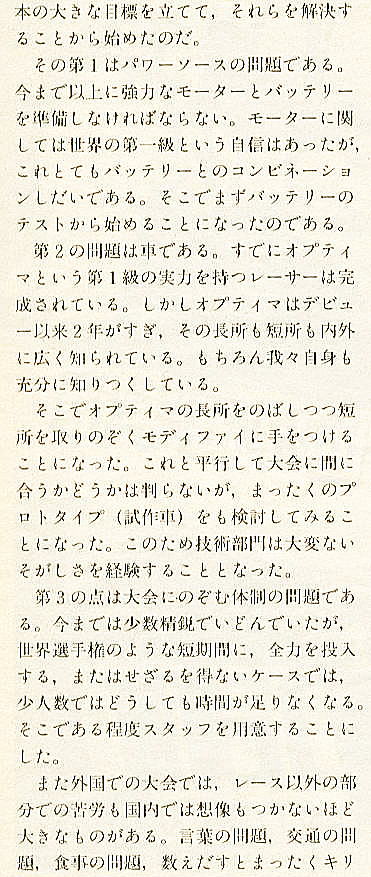 本の大きな目標を立てて，それらを解決す
ることから始めたのだ。
その第１はパワーソースの問題である。
今まで以上に強力なモーターとバッテリー
を準備しなければならない。モーターに関
しては世界の第一級という自信はあったが，
これとてもバッテリーとのコンビネーショ
ンしだいである。そこでまずバッテリーの
テストから始めることになったのである。
第２の問題は車である。すでにオプティ
マという第１級の実力を持つレーサーは完
成されている。しかしオプティマはデビュ
ー以来２年がすぎ，その長所も短所も内外
に広く知られている。もちろん我々自身も
充分に知りつくしている。
そこでオプティマの長所をのばしつつ短
所を取りのぞくモディファイに手をつける
ことになった。これと平行して大会に間に
合うかどうかは判らないが，まったくのプ
ロトタイプ（試作車）をも検討してみるこ
とになった。このため技術部門は大変ない
そがしさを経験することとなった。
第３の点は大会にのぞむ体制の問題であ
る。今までは少数精鋭でいどんでいたが，
世界選手権のような短期間に，全力を投入
する，またはせざるを得ないケースでは，
少人数ではどうしても時間が足りなくなる。
そこである程度スタッフを用意することに
した。
また外国での大会では，レース以外の部
分での苦労も国内では想像もつかないほど
大きなものがある。言葉の問題，交通の問
題，食事の問題，数えだすとまったくキリ